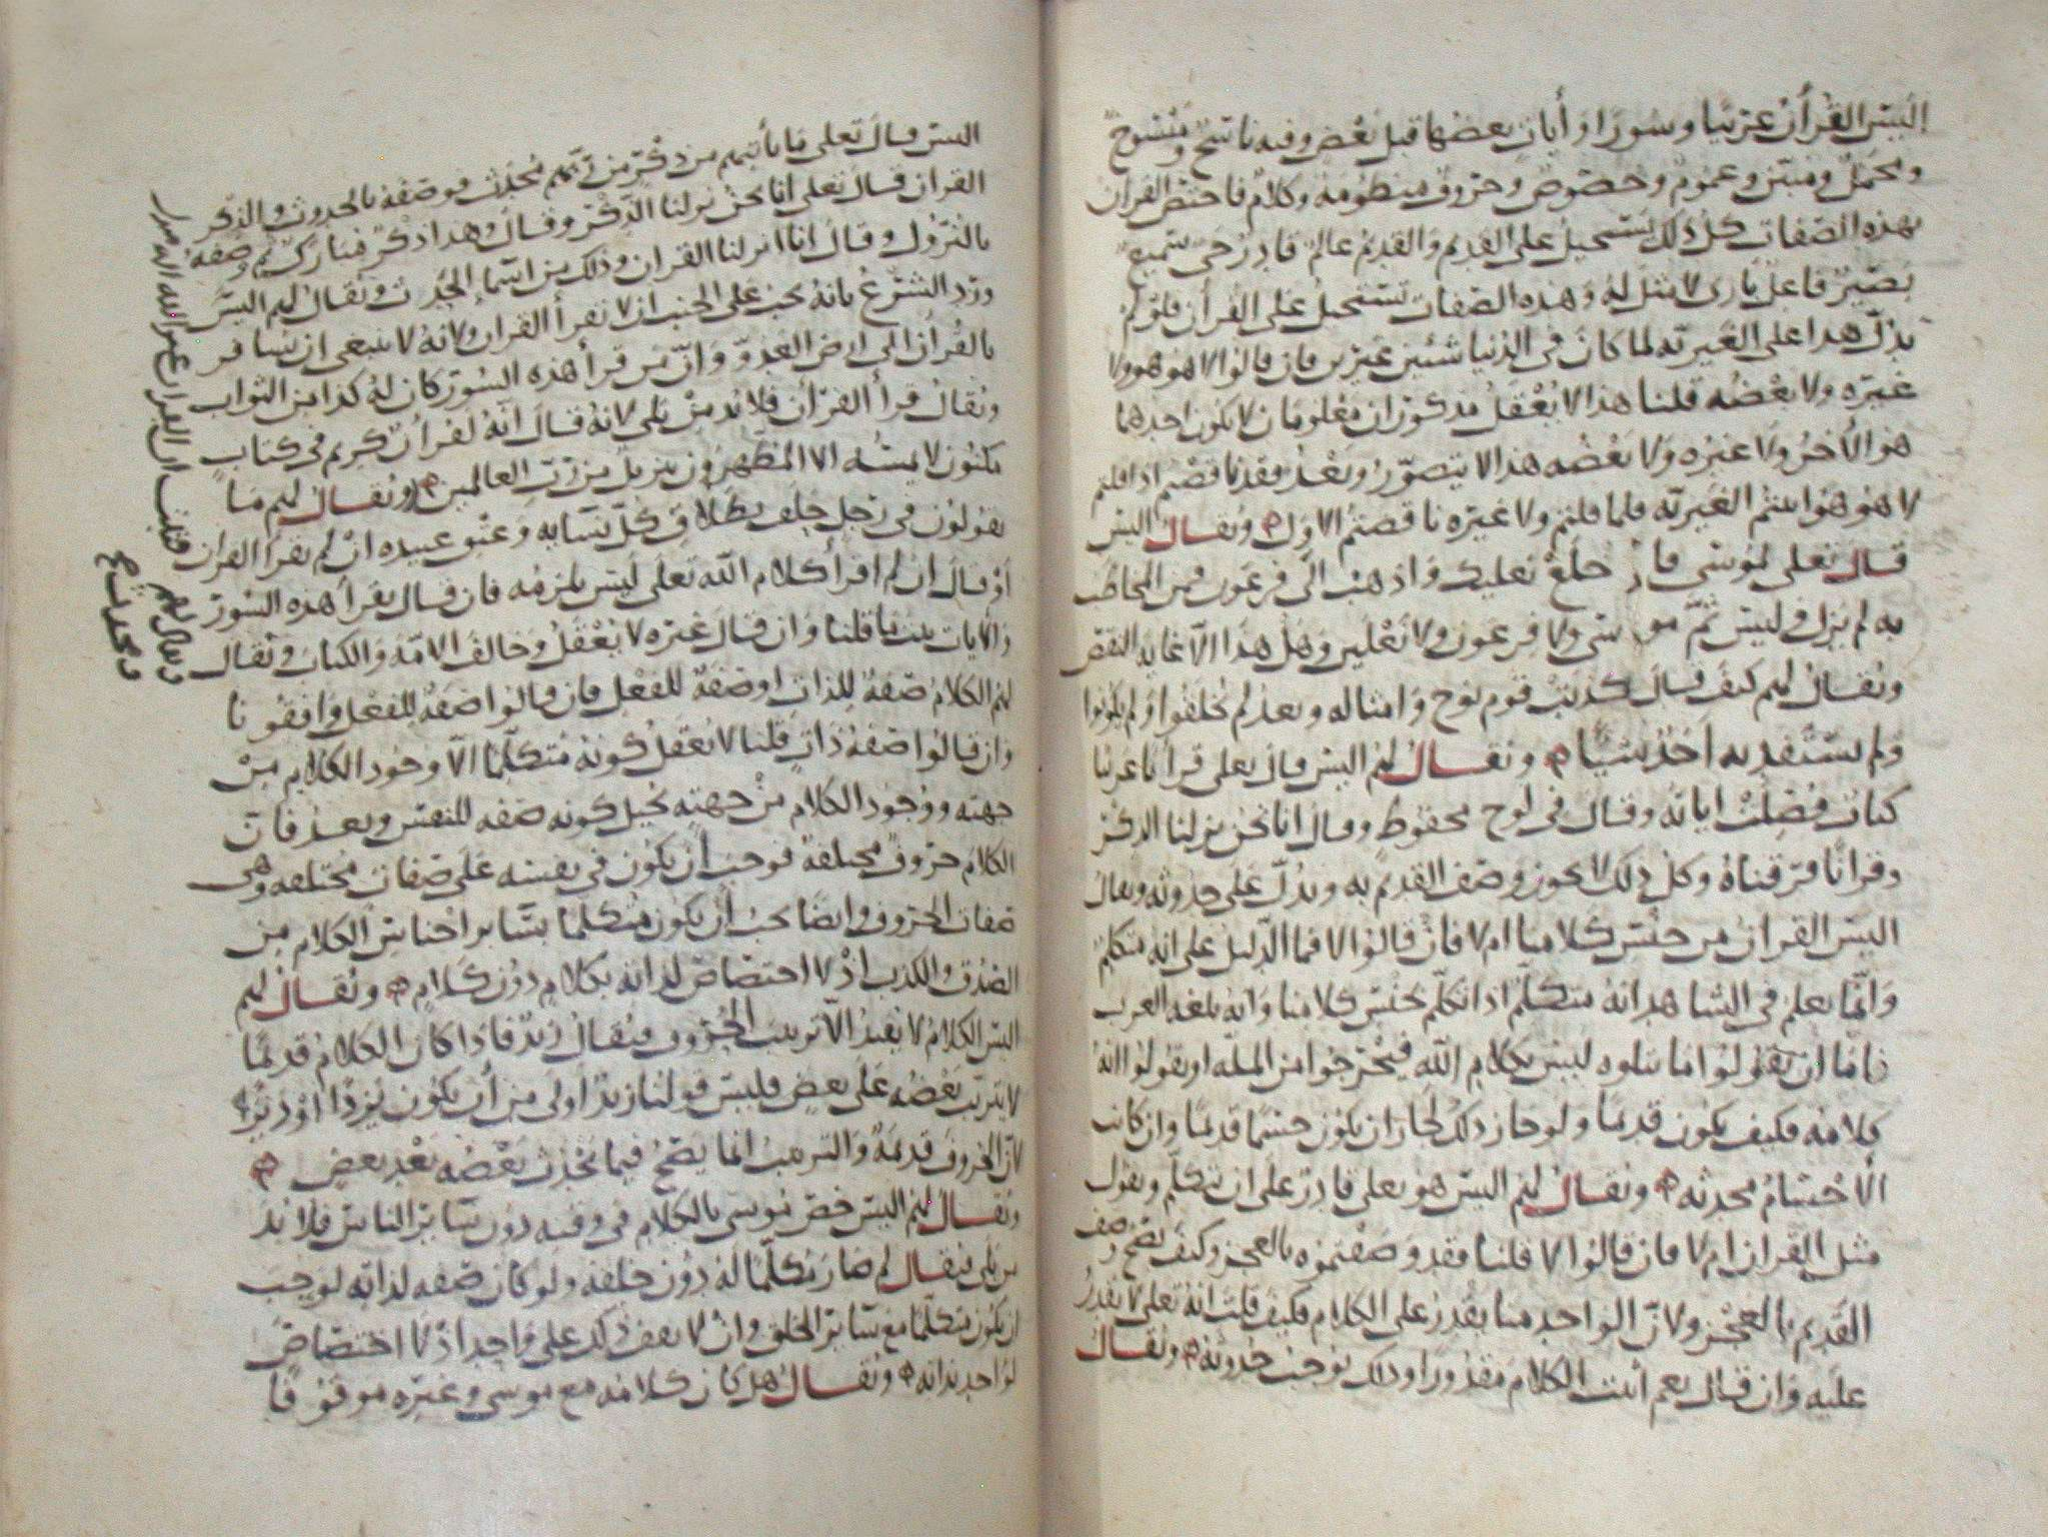 أليس القرآن عربيا وسورا وأيات بعضها قبل بعض وفيه ناسخ ومنسوخ
ومجمل ومبين وعموم وخصوص وحروف منظومة وكلام فاختص القرآن
بهذه الصفات كل ذلك يستحيل على القديم والقديم عالم قادر حي سميع
بصير فاعل بارئ لا مثل له وهذه الصفات تستحيل على القرآن فلو لم
يدل هذا على الغيرية لما كان في الدنيا شيئين غيرين فان قالوا لا هو هو ولا
غيره ولا بعضه قلنا هذا لا يعقل مذكوران معلومان لا يكون احدهما
هو الآخر ولا غيره ولا بعضه هذا لا يتصور وبعد فقد ناقضتم اذا قلتم
لا هو هو اثبتم الغيرية فلما قلتم ولا غيره ناقضتم الأول ويقال أليس
قال تعالى لموسى فاخلع نعليك واذهب الى فرعون فمن المخاطب
به لم يزل وليس ثم موسى ولا فرعون ولا نعلين وهل هذا الا غاية النقص
ويقال لهم كيف قال كذبت قوم نوح وامثاله وبعد لم يخلقوا ولم يكونوا
ولم يستفد به احد شيئا ويقال لهم أليس قال تعالى قرآنا عربيا
كتاب فصلت اياته وقال في لوح محفوظ وقال انا نحن نزلنا الذكر
وقرآنا فرقناه وكل ذلك لا يجوز وصف القديم به ويدل على حدوثه ويقال
أليس القرآن من جنس كلامنا ام لا فان قالوا لا فما الدليل على انه متكلم
وانما يعلم في الشاهد انه متكلم اذا تكلم بجنس كلامنا وانه بلغة العرب
فاما ان يقولوا ما نتلوه ليس بكلام الله فيخرجوا من الملة او يقولوا انه
كلامه فكيف يكون قديما ولو جاز ذلك لجاز ان يكون جسما قديما وان كانت
الأجسام محدثه ويقال لهم أليس هو تعالى قادر على ان يتكلم ويقول
مثل القرآن ام لا فان قالوا لا قلنا فقد وصفتموه بالعجز وكيف يصح وصف
القديم بالعجز ولأن الواحد منا يقدر على الكلام فكيف قلت انه تعالى لا يقدر
عليه وان قال نعم أثبت الكلام مقدورا وذلك يوجب حدوثه ويقال
أليس قال تعالى ما يأتيهم من ذكر من ربهم محدث فوصفه بالحدوث والذكر
القرآن قال تعالى انا نحن نزلنا الذكر وقال وهذا ذكر مبارك ثم وصفه
بالنزول وقال انا انزلنا القرآن وذلك من اسماء الحدث ويقال لهم أليس
ورد الشرع بانه يجب على الجنب ان لا يقرأ القرآن ولانه لا ينبغي ان يسافر
بالقرآن الى ارض العدو وان من قرأ هذه السور كان له كذا من الثواب
ويقال قرأ القرآن فلا بد من بلى لانه قال انه لقرآن كريم في كتاب
مكنون لا يمسه الا المطهرون تنزيل من رب العالمين ويقال لهم ما
تقولون في رجل حلف بطلاق كل نسائه وعتق عبيده ان لم يقرأ القرآن
او قال ان لم اقرأ كلام الله تعالى أليس يلزمه فان قال يقرأ هذه السور
والآيات ثبت ما قلنا وان قال غيره لا يعقل وخالف الامة والكتاب ويقال
لهم الكلام صفة للذات او صفة للفعل فان قالوا صفة للفعل وافقونا
وان قالوا صفة ذات قلنا لا يعقل كونه متكلما الا وجود الكلام من
جهته ووجود الكلام من جهته يحيل كونه صفه للنفس وبعد فان
الكلام حروف مختلفة فوجب ان يكون في نفسه على صفات مختلفه وهي
صفات الحروف وايضا يجب أن يكون متكلما بسائر اجناس الكلام من
الصدق والكذب اذ لا اختصاص لذاته بكلام دون كلام ويقال لهم
أليس الكلام لا يفيد الا ترتيب الحروف فيقال زيد فاذا كان الكلام قديما
لا يترتب بعضه على بعض فليس قولنا زيد اولى من أن يكون يزدا او ديزا
لأن الحروف قديمة والترتيب انما يصح فيما يحدث بعضه بعد بعض
ويقال لهم أليس خص موسى بالكلام في وقته دون سائر الناس فلا بد
من بلى فيقال لم صار متكلما له دون خلقه ولو كان صفه لذاته لوجب
ان يكون متكلما مع سائر الخلق وان لا يقف ذلك على واحد اذ لا اختصاص
لواحد بذاته ويقال هل كان كلامه مع موسى وغيره موقوفا